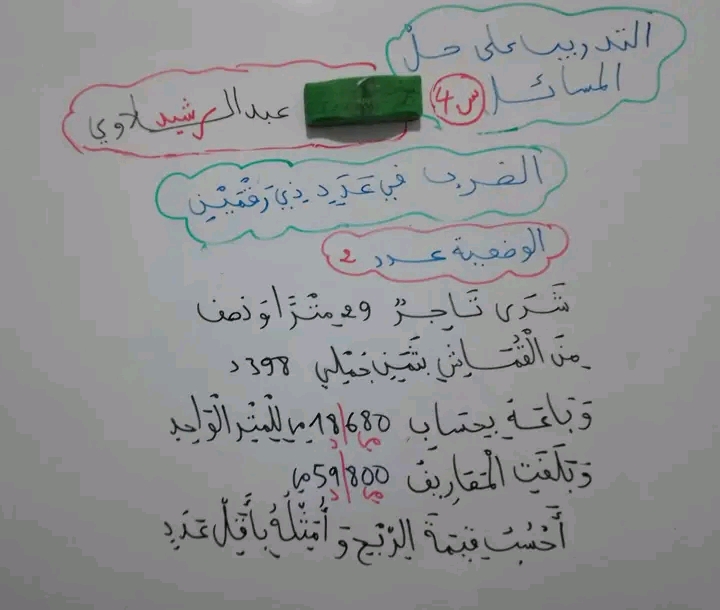 التدريب على حلّ
المسائل
س4
عبد الرشيد لاوي
الضرب في عَدَدٍ ذِي رَقْمَيْنِ
الوضعية عدد 2
شَرَى تَاجِرٌ 29 مِتْرًا وَ نصف
مِنَ الْقُمَاشِ بِثَمَنٍ جُمَلِي 398 د
وَبَاعَهُ بِحِسَابِ 18680 مي لِلْمِتْرِ الْوَاحِدِ
مي د
وَبَلَغَتِ الْمَصَارِيفُ 59800 مي
مي د
أَحْسُبُ قِيمَةَ الرِّبْحِ وَ أُمَثِّلُهُ بِأَقَلِّ عَدَدٍ